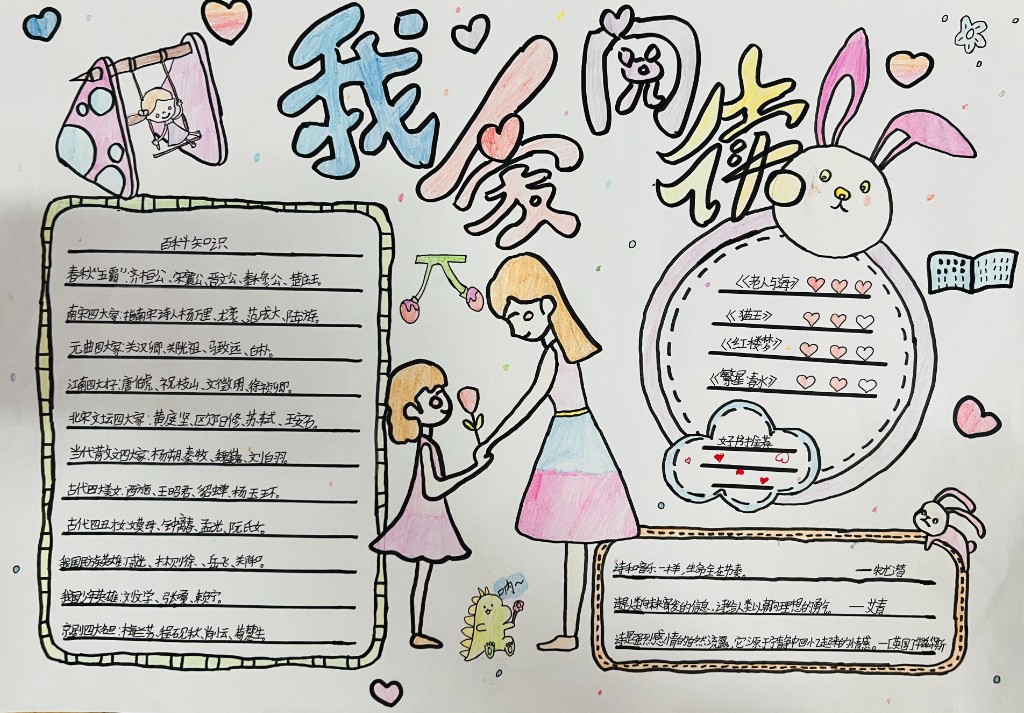 我爱阅读
百科知识
春秋"五霸":齐桓公、宋襄公、晋文公、秦穆公、楚庄王。
南宋四大家:指南宋诗人杨万里、尤袤、范成大、陆游。
元曲四大家:关汉卿、马致远、白朴。
江南四大才子:唐伯虎、祝枝山、文徵明、徐祯卿。
北宋文坛四大家:黄庭坚、欧阳修、苏轼、王安石。
当代散文四大家:杨朔、秦牧、魏巍、刘白羽。
古代四大美女:西施、王昭君、貂蝉、杨玉环。
古代四丑女:嫫母、钟离春、孟光、阮氏女。
我国民族英雄:戚继光、林则徐、岳飞、
我国少年英雄:刘文学、赖宁。
京剧四大名旦:梅兰芳、程砚秋、尚小云、荀慧生
《老人与海》
《猫王》
《红楼梦》
《繁星·春水》
好书推荐
呐~
诗和音乐一样,生命全在节奏。 —朱光潜
诗是人类向未来寄发的信息,诗给人类以朝向理想的勇气。 —艾青
诗是强烈感情的自然流露,它源于宁静中回忆起来的情感。—[英国]华兹华斯